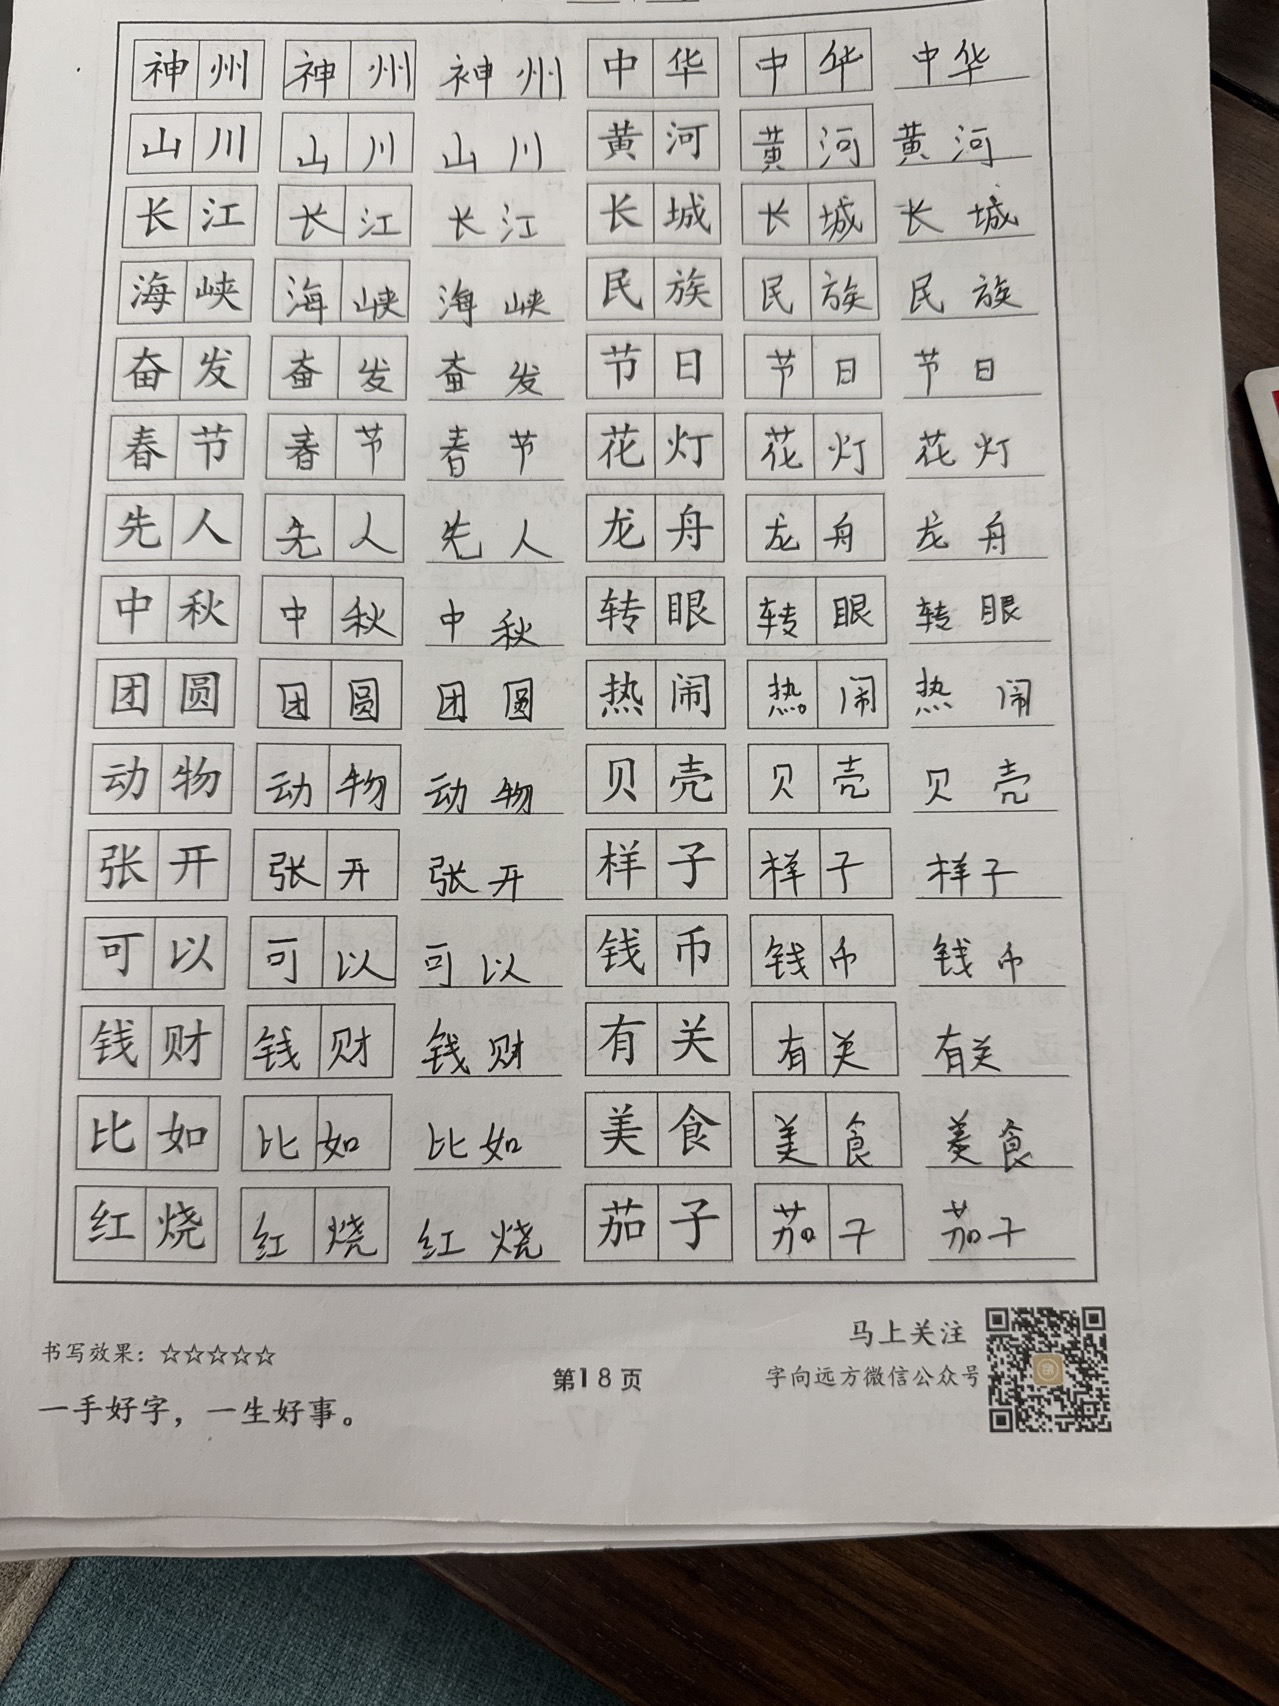 神州 神州 神州 中华 中华 中华
山川 山川 山川 黄河 黄河 黄河
长江 长江 长江 长城 长城 长城
海峡 海峡 海峡 民族 民族 民族
奋发 奋发 奋发 节日 节日 节日
春节 春节 春节 花灯 花灯 花灯
先人 先人 先人 龙舟 龙舟 龙舟
中秋 中秋 中秋 转眼 转眼 转眼
团圆 团圆 团圆 热闹 热闹 热闹
动物 动物 动物 贝壳 贝壳 贝壳
张开 张开 张开 样子 样子 样子
可以 可以 可以 钱币 钱币 钱币
钱财 钱财 钱财 有关 有关 有关
比如 比如 比如 美食 美食 美食
红烧 红烧 红烧 茄子 茄子 茄子
书写效果：☆☆☆☆☆
一手好字，一生好事。
第18页
马上关注
字向远方微信公众号